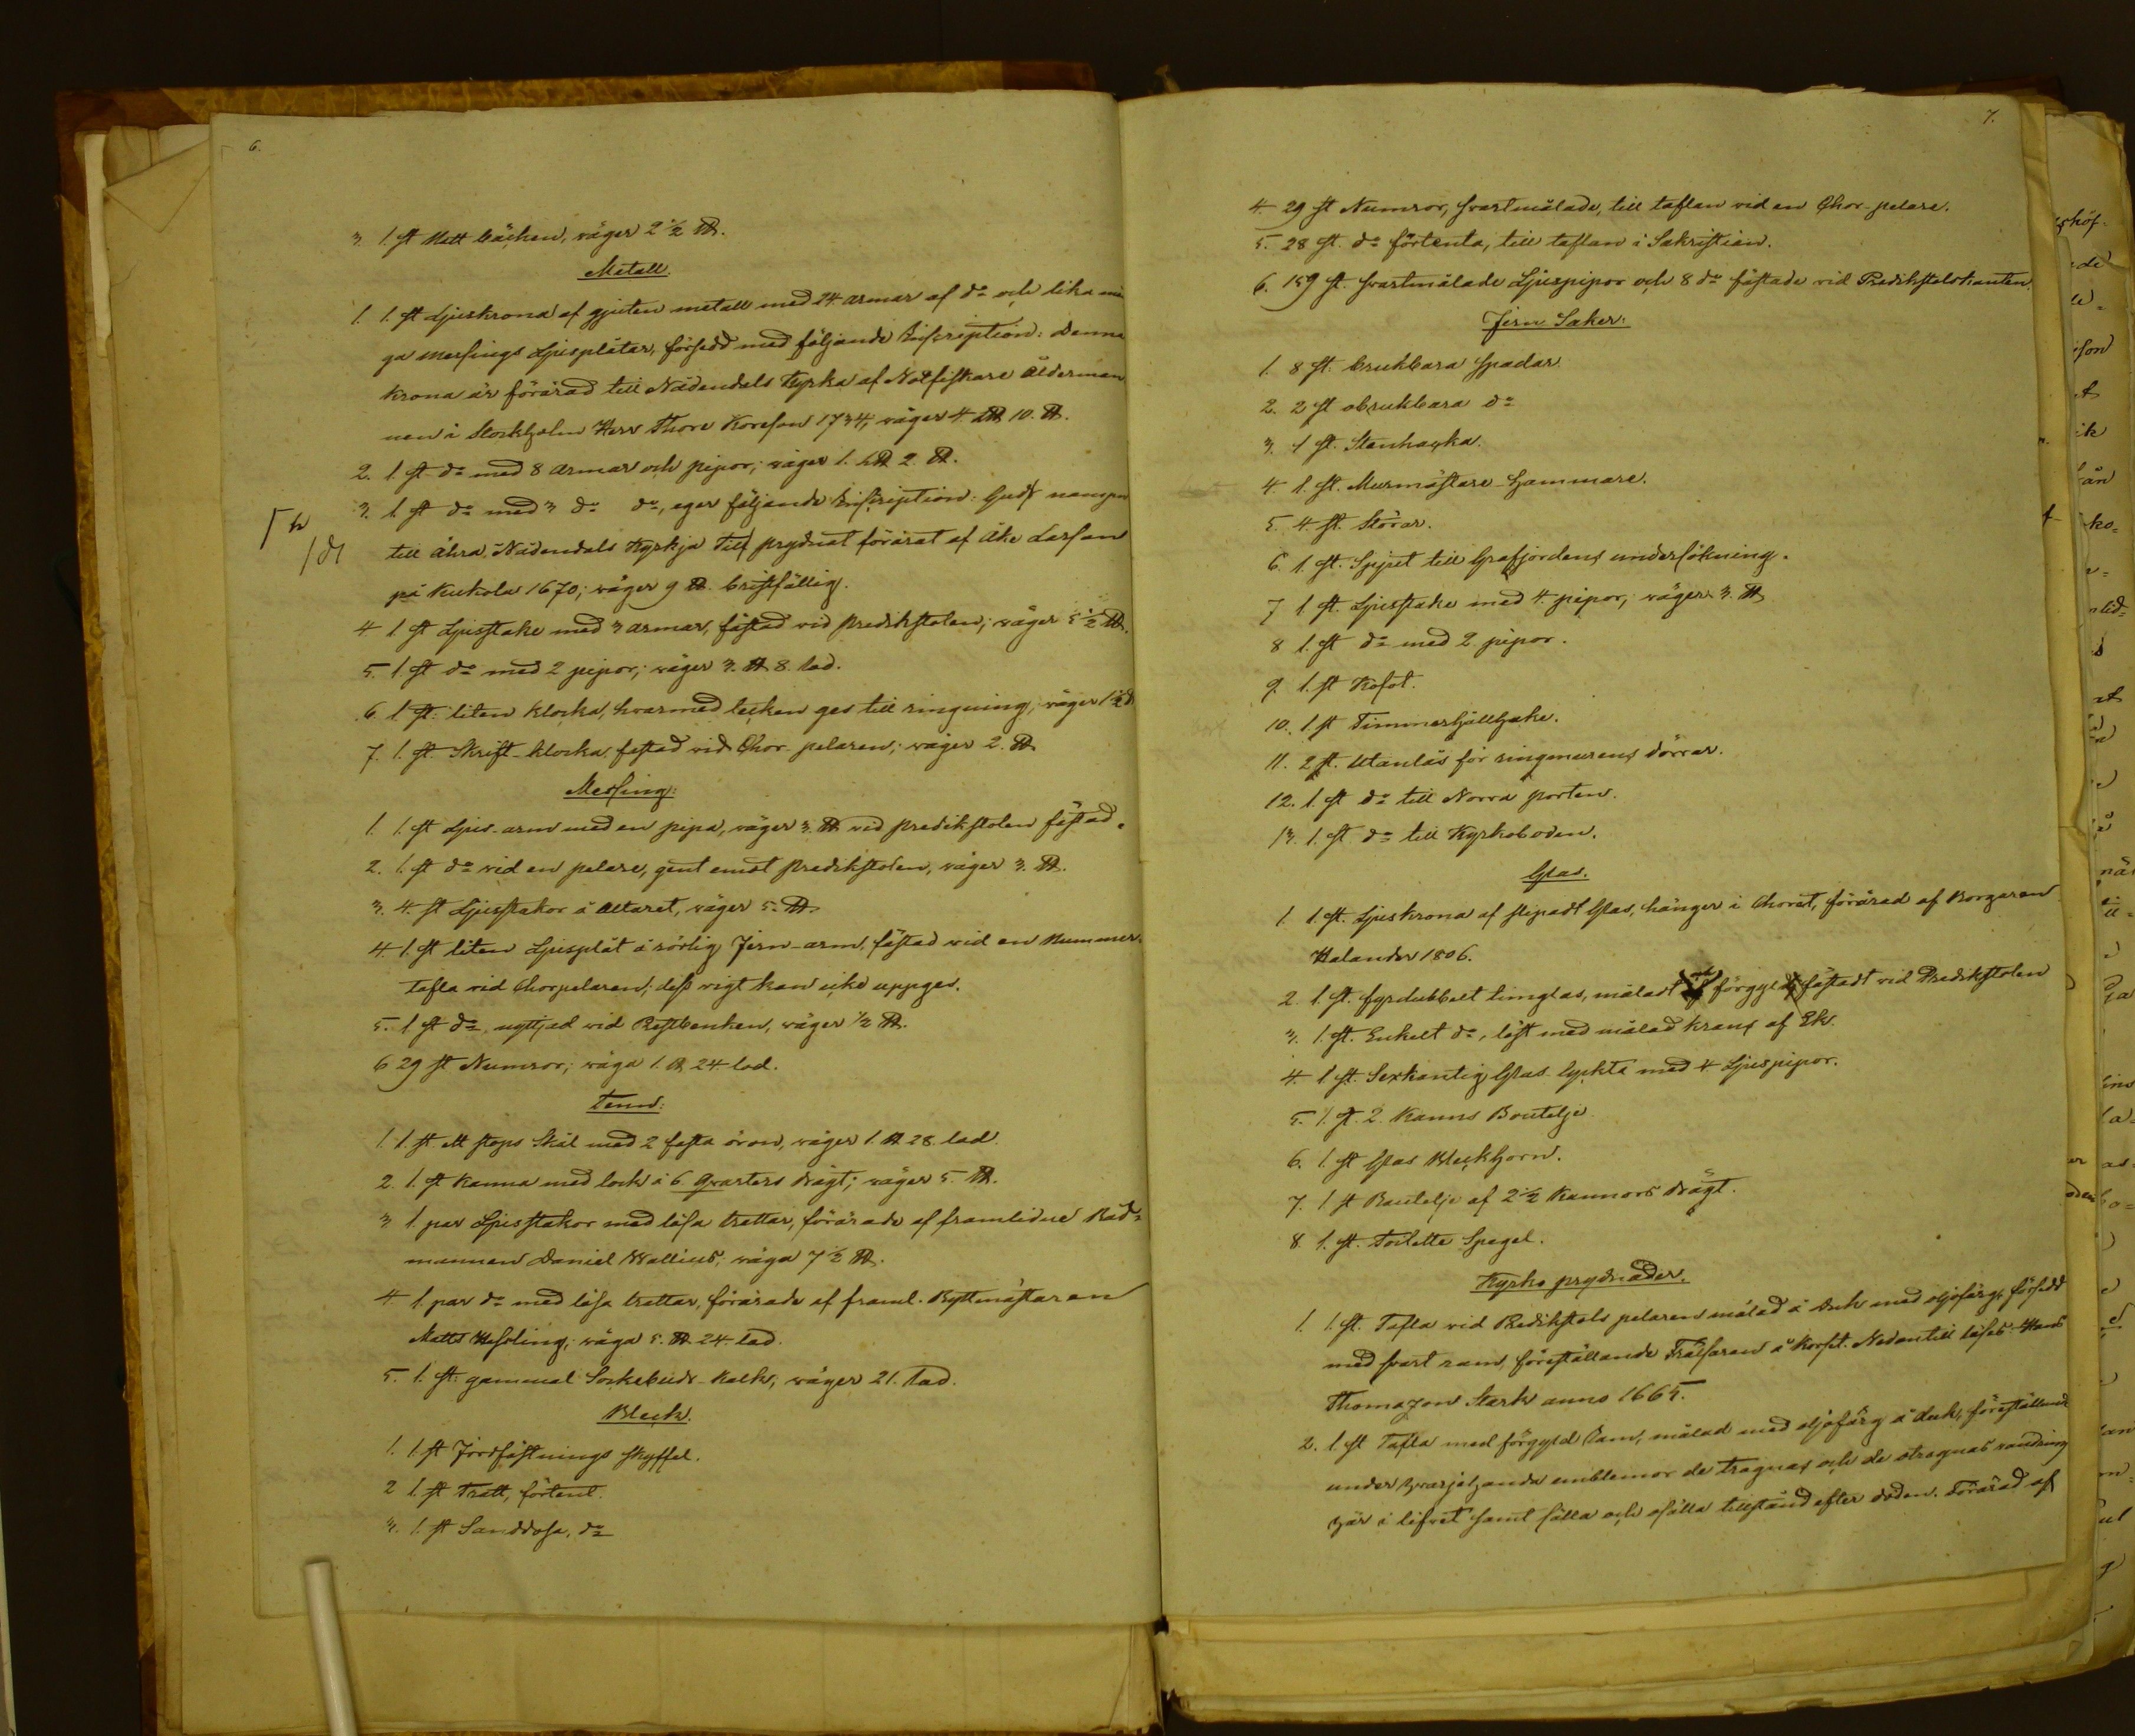 6.
3. 1. st Natt bäcken, wäger 2 1/2 ℔.
Metall.
1. 1. st Ljuskrona af gjuten metall med 24 armar af do och lika mån
ga Messings Ljusplåtar, försedd med följande Inscription: Denna
krona är förärad till Nådendals Kyrka af Notfiskare Ålderman
nen i Stockholm Herr Thore Koreson 1734; wäger 4 L℔ 10. ℔.
2. 1. st do med 8 armar och pipor; wäger 1. L℔ 2. ℔.
3. 1. st do med 3 do do, eger följande Inscription: Guds nampn
till ähra, Nådendals Kyrkja till prydnat förärat af Åke Larson
på Kukola 1670; wäger 9 ℔. bristfällig.
4 1 st Ljusstake med 3 armar, fästad vid predikstolen; wäger 5 1/2 ℔.
5. 1 st do med 2 pipor; wäger 3. ℔ 8. lod.
6. 1 st. liten klocka, hvarmed tecken ges till ringning, wäger 1 1/2 ℔
7. 1. st. Skrift-klocka, fästad wid Chor-pelaren; wäger 2. ℔
Messing:
1. 1. st Ljus-arm med en pipa, wäger 3. ℔ vid predikstolen fästad.
2. 1. st do vid en pelare, gent emot predikstolen, wäger 3. ℔.
3. 4. st Ljusstakor å Altaret, wäger 5. ℔.
4. 1. st liten Ljusplåt å rörlig Jern-arm, fästad wid en Nummer-
tafla vid Chorpelaren; dess vigt kan icke uppges.
5. 1 st do, nyttjad wid Restbänken, wäger 1/2 ℔.
6 29 st Numror; wäga 1. ℔ 24 lod.
Tenn:
1. 1. st ett stops Skål med 2 fasta öron, wäger 1. ℔ 28. lod.
2. 1. st Kanna med lock å 6 Qvarters drägt; wäger 5. ℔.
3 1. par Ljusstakor med lösa trattar, förärade af framlidne Råd-
mannen Daniel Wallius; wäga 7 1/2 ℔.
4. 1. par do med lösa trattar, förärade af framl. Ryttmästaren
Matts Hesling; wäga 5. ℔ 24. lod.
5. 1. st. gammal Sockebuds-kalk; wäger 21. lod.
Bleck.
1. 1. st Jordfästnings skyffel.
2 1. st Tratt, förtent.
3. 1. st Sanddosa, do
7.
4. 29 st Numror, svartmålade, till taflan vid en Chor-pelare.
5. 28 st. do förtenta, till taflan i Sakristian.
6. 159 st. svartmålade Ljuspipor och 8 do fästade vid Predikstolskanten
Jern Saker:
1. 8 st. brukbara spadar.
2. 2 st obrukbara do
3. 1 st. Stenhacka.
4. 1. st. Murmästare-Hammare.
5. 4. st. Störar.
6. 1. st. Spjut till Grafjordens undersökning.
7 1 st. Ljusstake med 4. pipor; wäger 3. ℔
8 1. st do med 2 pipor.
9. 1. st Kofot.
10. 1 st Timmerhällhake.
11. 2 st. Utanlås för ringmurens dörrar.
12. 1. st do till Norra porten.
13. 1. st do till Kyrkoboden.
Glas.
1. 1. st. Ljuskrona af slipadt Glas, hänger i Choret, förärad af Borgaren
Kalander 1806.
2. 1. st. fyrdubbelt timglas, måladt och förgyldt, fästadt vid Predikstolen
3. 1. st. Enkelt do, löst med målad krans af Ek.
4. 1 st. Sexkantig Glas-lyckta med 4 Ljuspipor.
5. 1. st. 2. Kanns Boutelje.
6. 1. st Glas Bleckhorn.
7. 1 st Boutelje af 2 1/2 Kannors drägt.
8. 1. st. Toilette Spegel.
Kyrko prydnader.
1. 1. st. Tafla vid Predikstols pelaren målad å duk med oljofärg, försedd
med svart ram, föreställande Frälsaren å korset. Nedantill läses: Hans
Thomason Stark anno 1665.
2. 1 st Tafla med förgyld Ram, målad med oljofärg å duk, föreställande
under hvarjehanda emblemor de trognas och de otrognas vandring
här i lifvet samt sälla och osälla tillstånd efter döden. Förärad af